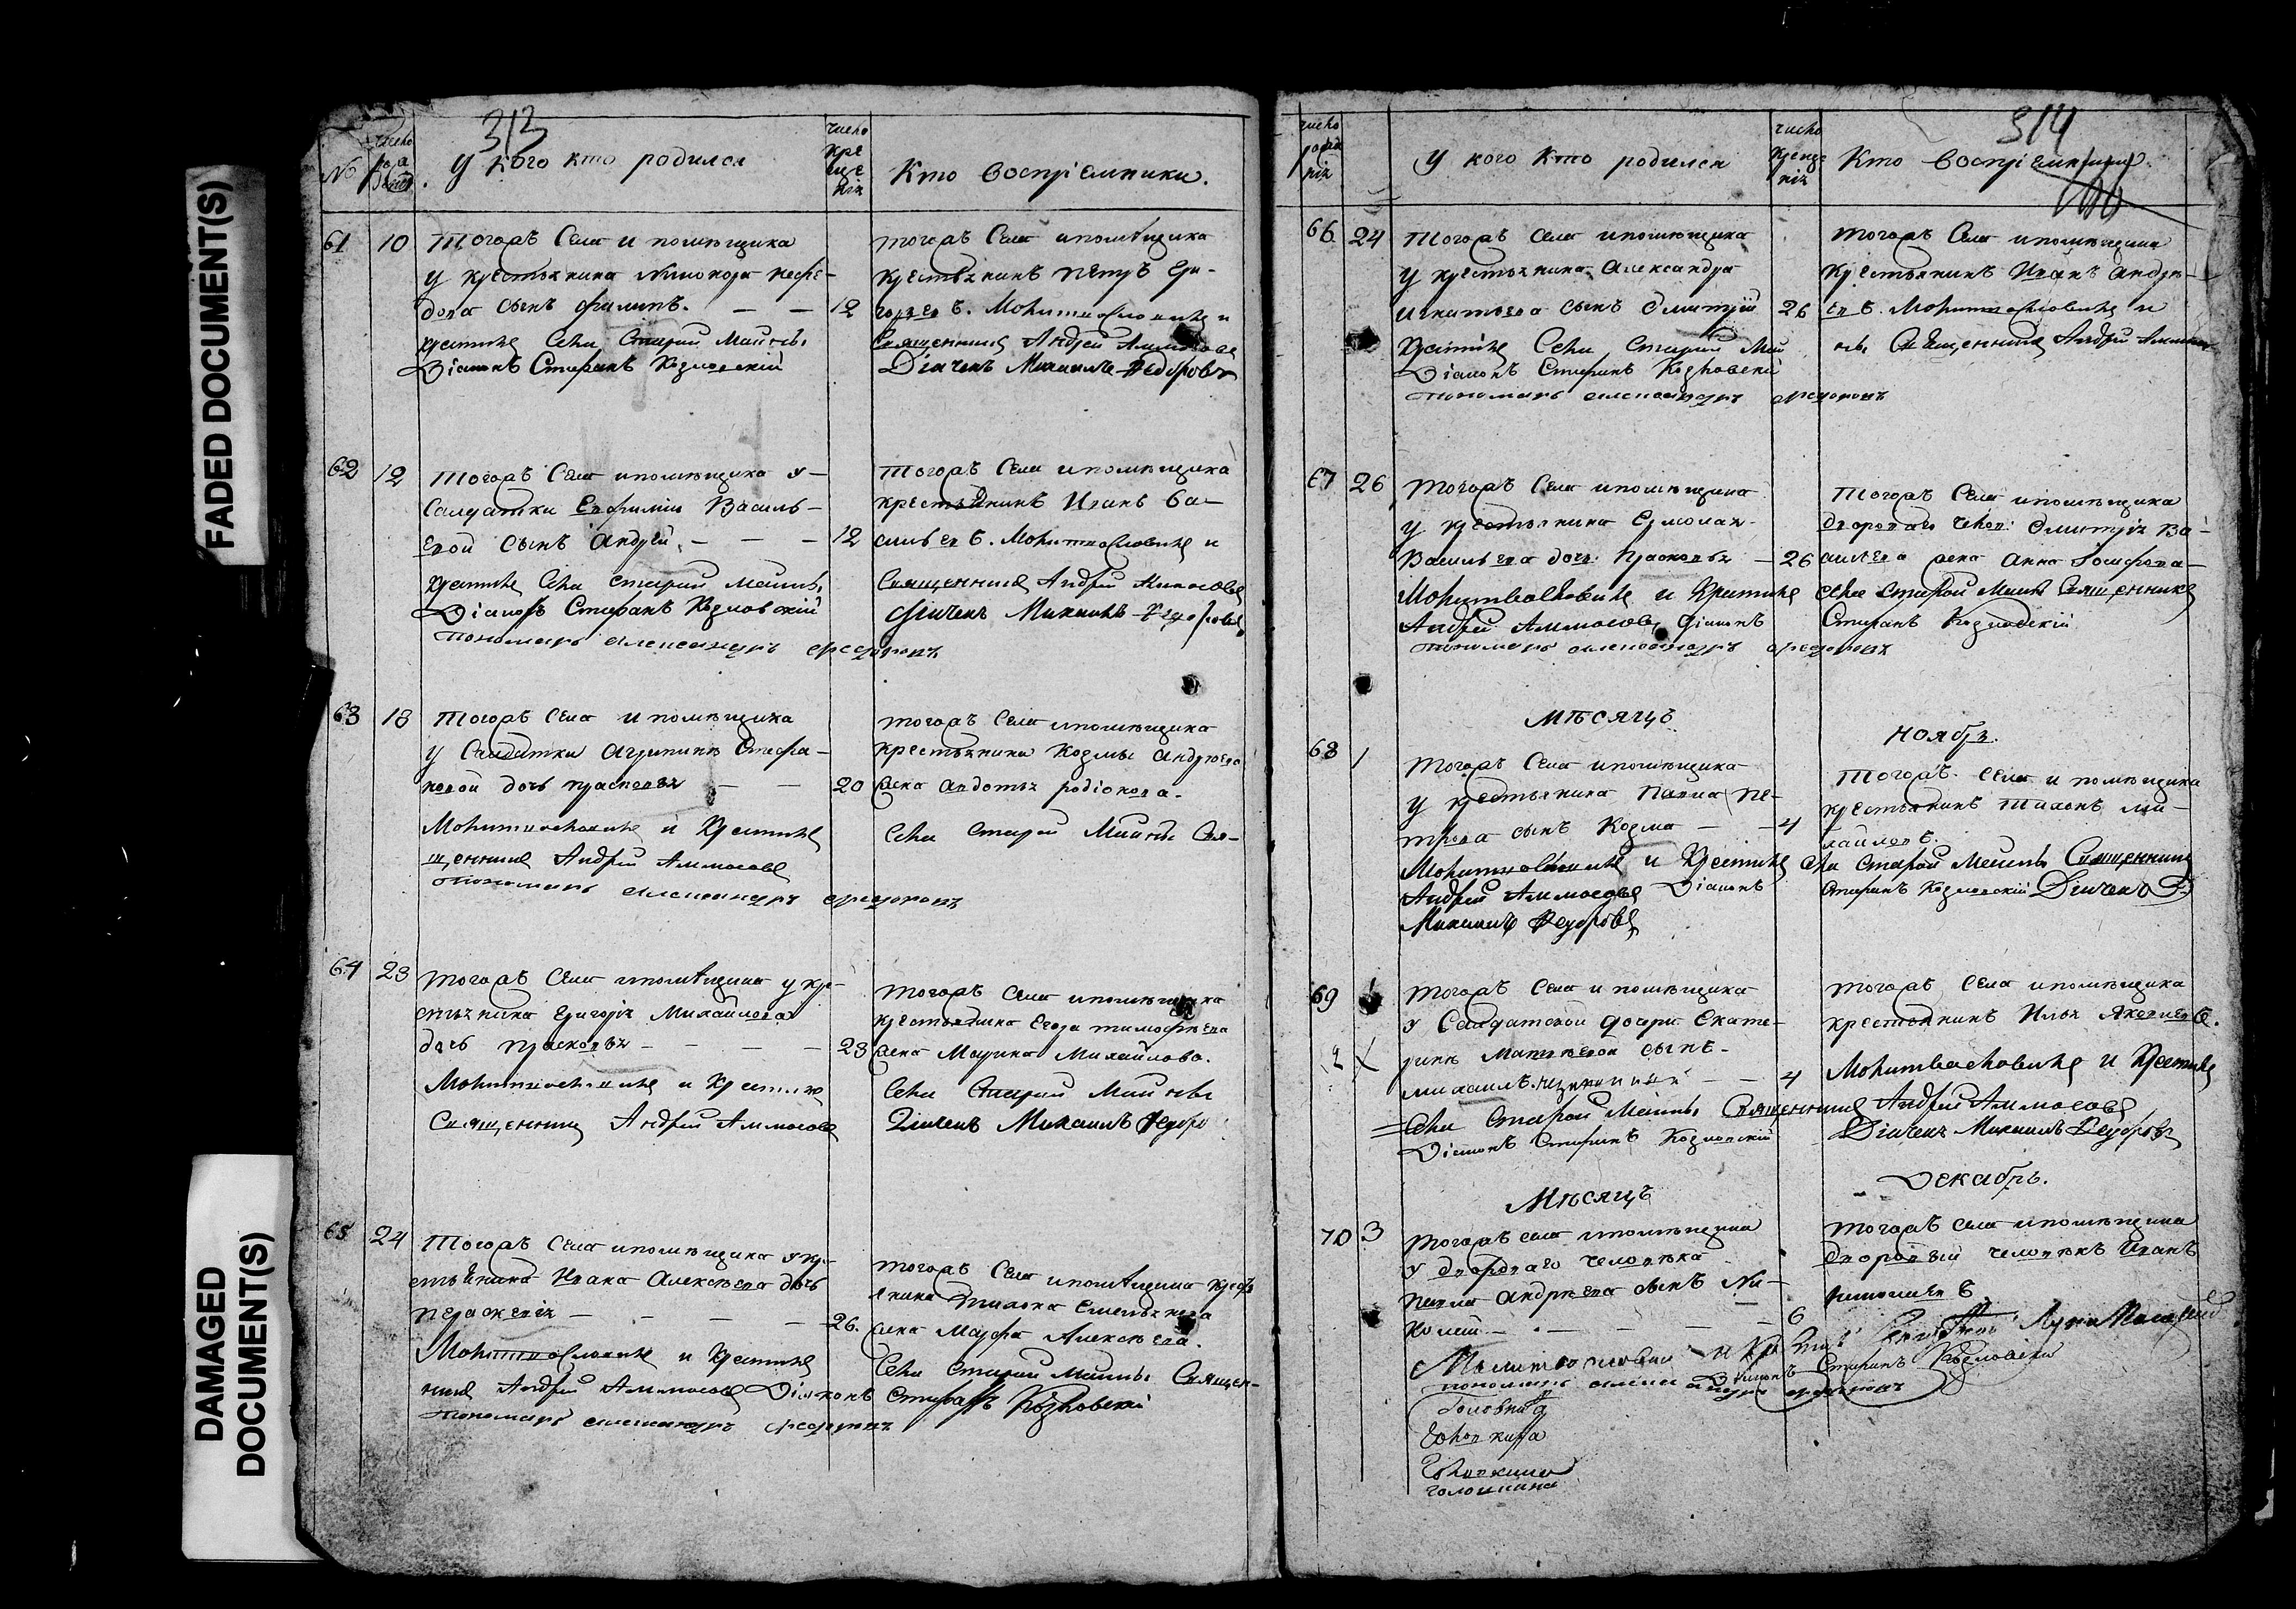 FADED DOCUMENTS(S)
DAMAGED
DOCUMENT(S)
313
№
число
рож
денія
У кого кто родился
число
кре
ще
нія
Кто воспрiемники.
61 10 Тогожъ Села и помѣщика
у крестьянина Никонора Нефе-
дова сынъ Филипъ. — — 12
крестилъ Сели Старой Маины
Дiаконъ Стефанъ Козловскiй
тогожъ Села ипомѣщика
крестьянинъ Петръ Гри-
горьевъ. Молитвословилъ и
Священникъ Андрей Аммосовъ
Дiячекъ Михаилъ Федоровъ
62 12 Тогожъ Села ипомѣщика у
Салдатки Евфимiи Василь-
евой сынъ Андрей. — — — 12
крестилъ Села старой маины,
Дiаконъ Стефанъ Козловскiй
пономарь александръ федоровъ
Тогожъ Села ипомѣщика
крестьянинъ Иванъ Ва-
сильевъ. Молитвословилъ и
Священникъ Андрей Аммосовъ
Дiячекъ Михаилъ Федоровъ
63 18 Тогожъ Села и помѣщика
у Салдатки Агрипины Стефа-
новой дочь прасковья — — 20
Молитвословилъ и Крестилъ
щенникъ Андрей Аммосовъ
пономарь александръ федоровъ
тогожъ Села ипомѣщика
крестьянина Козмы Андреева
жена Авдотья родiонова.
Села Старой Маины Свя-
64 23 Тогожъ Села ипомѣщика у кре-
стьянина Григорья Михайлова
дочь прасковья — — — — 23
Молитвословилъ и Крестилъ
Священникъ Андрей Аммосовъ
Тогожъ Села ипомѣщика
крестьянина Егора тимофѣева
жена Марина Михайлова.
Села Старой Маины
Дiячекъ Михаилъ Федоро
65 24 Тогожъ Села ипомѣщика у кре-
стьянина Ивана Алексѣева дочь
параскевiя — — — — 26.
Молитвословилъ и Крестилъ
никъ Андрей Аммосовъ Дiаконъ
пономарь александръ федоровъ
тогожъ Села ипомѣщика крестья
янина Тихона Емельянова
жена Марфа Алексѣева.
Села Старой Маины Священ-
Стефанъ Козловскiй
314
число
рожде
нiя
У кого кто родился
число
креще
нiя
Кто воспрiемники.
66 24 Тогожъ Села ипомѣщика
у крестьянина Александра
Игнатьева сынъ Дмитрiй 26
Крестилъ Села Старой Маи
Дiаконъ Стефанъ Козловскiй
пономарь александръ федоровъ
тогожъ Села ипомѣщика
Крестьянинъ Иванъ Андре-
евъ. Молитвословилъ и
ны Священникъ Андрей Аммосовъ
67 26 Тогожъ Села ипомѣщика
у крестьянина Ермолая
Васильева дочь Прасковья — 26
Молитвословилъ и Крестилъ
Андрей Аммосовъ Дiаконъ
пономарь александръ федоровъ
Тогожъ Села ипомѣщика
дворового челов: Дмитрiя Ва-
сильева жена Анна
Села старой Маины Священникъ
Стефанъ Козловскiй
мѣсяцъ ноябрь.
68 1 Тогожъ Села ипомѣщика
у крестьянина Павла Пе-
трова сынъ Козма — — 4
Молитвословилъ и Крестилъ
Андрей Аммосовъ Дiаконъ
Михаилъ Федоровъ
Тогожъ Села и помѣщика
крестьянинъ Тихонъ ми-
хайловъ.
Села Старой Маины Священникъ
Стефанъ Козловскiй Дiячекъ
69 1 Тогожъ Села и помѣщика
у Салдатской дочери Екате-
рины Матвѣевой сынъ
михаилъ — — 4
Села Старой Маины Священникъ
Дiаконъ Стефанъ Козловскiй
тогожъ Села ипомѣщика
крестьянинъ Илья Яковлевъ.
Молитвословилъ и Крестилъ
Андрей Аммосовъ
Дiячекъ Михаилъ Федоровъ
Мѣсяцъ Декабрь.
70 3 Тогожъ села ипомѣщика
у двороваго человѣка
Павла Андреева сынъ Ни-
колай — — — — 6
Молитвословилъ и Крестилъ
пономарь александръ федоровъ
тогожъ села ипомѣщика
дворовый человѣкъ Иванъ
Дiаконъ Стефанъ Козловскiй